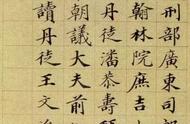 刑部廣東司
翰林院庶吉
丹徒潘恭壽
朝議大夫前
讀丹徒王文